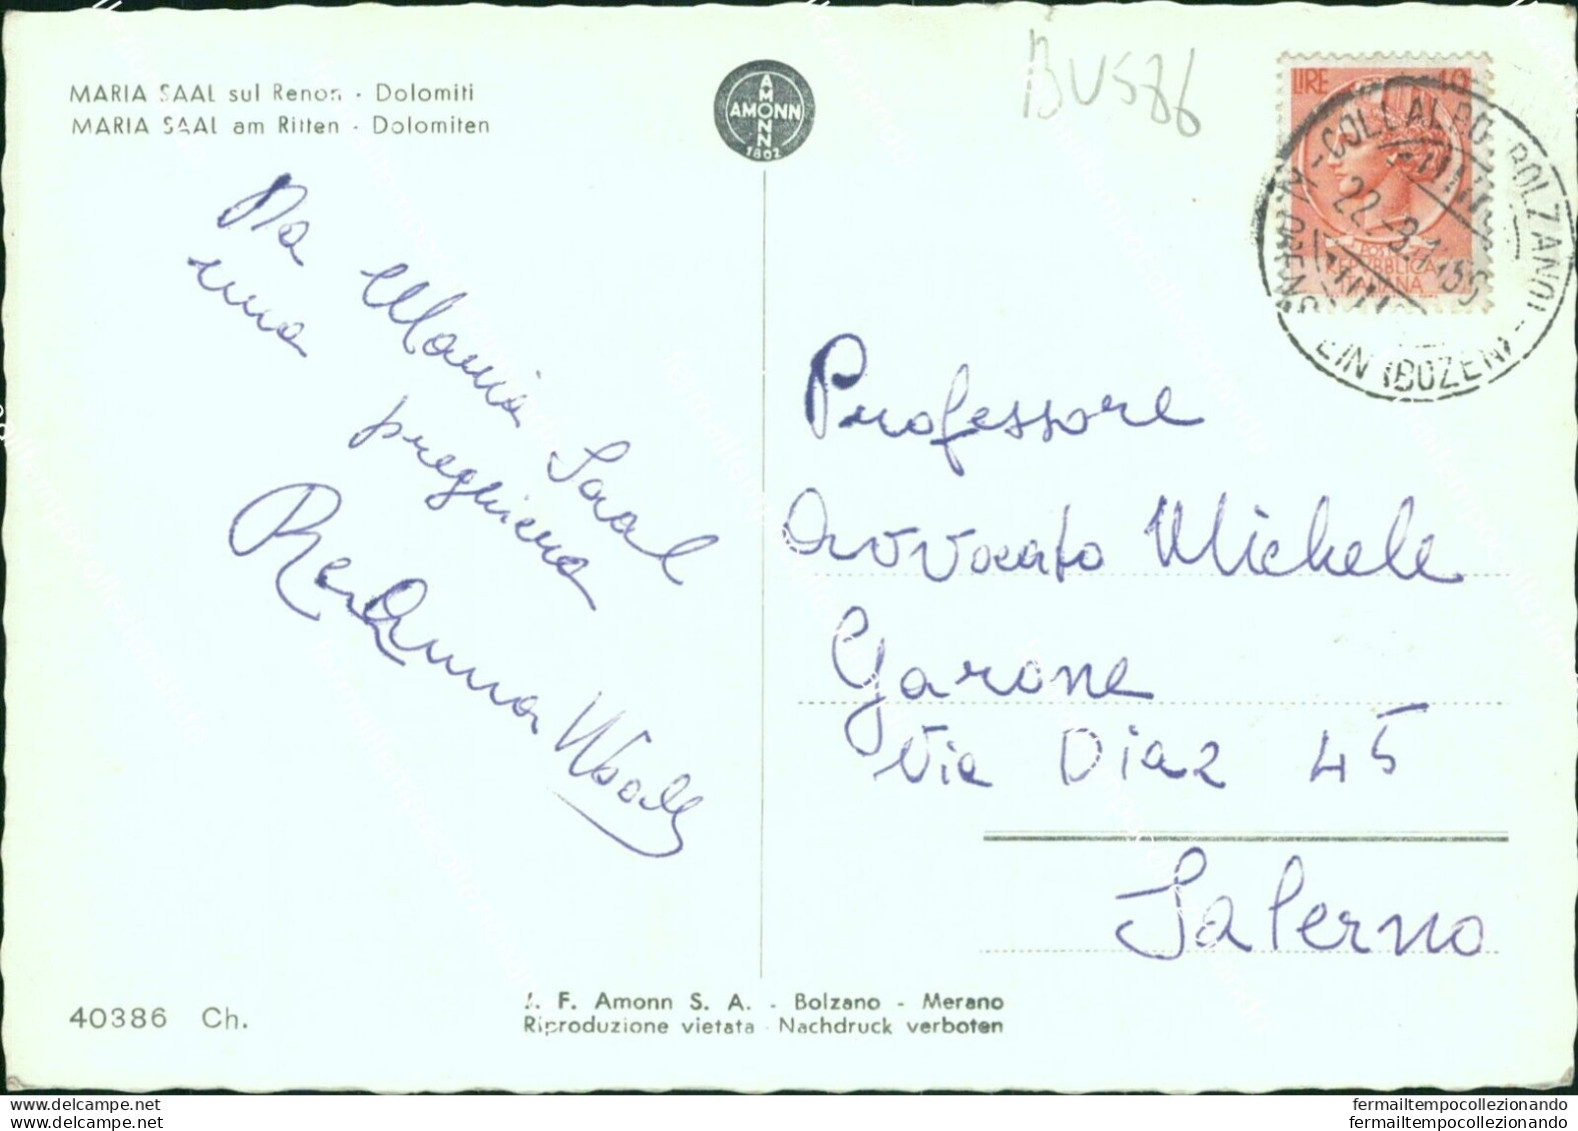 MARIA SAAL sul Renon - Dolomiti
MARIA SAAL am Ritten - Dolomiten
AMONN
AMONN
1802
BU586
LIRE 10
COLLALBO (BOLZANO)
22.-8.
(BOZEN)
POSTE
REPUBBLICA
ITALIANA
Da Maria Saal
una preghiera
Professore
Avvocato Michele
Garone
Via Diaz 45
Salerno
40386 Ch.
J. F. Amonn S. A. - Bolzano - Merano
Riproduzione vietata - Nachdruck verboten
fermailtempocollezionando
fermailtempocollezionando
fermailtempocollezionando
fermailtempocollezionando